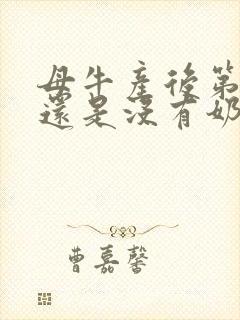 母牛產後第
還是沒有奶
曹嘉馨